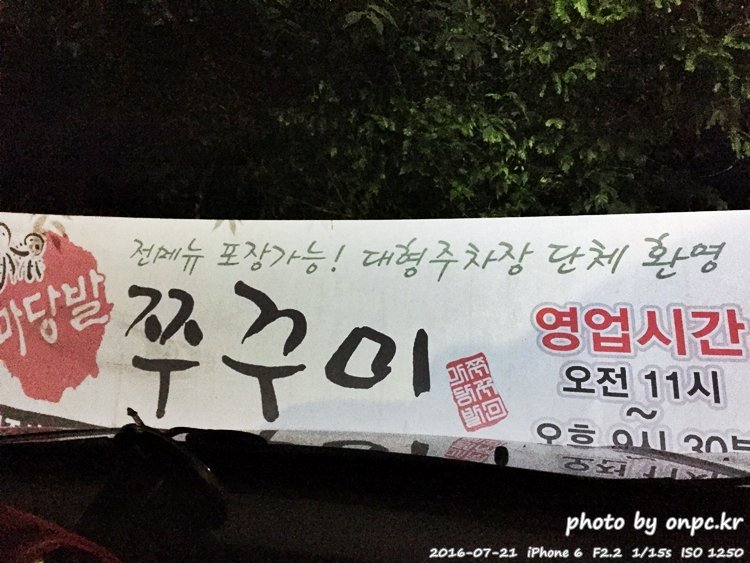 전메뉴 포장가능! 대형주차장 단체 환영
마당발
쭈꾸미
마당발
쭈꾸미
영업시간
오전 11시
~
오후 9시 30분
photo by onpc.kr
2016-07-21 iPhone 6 F2.2 1/15s ISO 1250